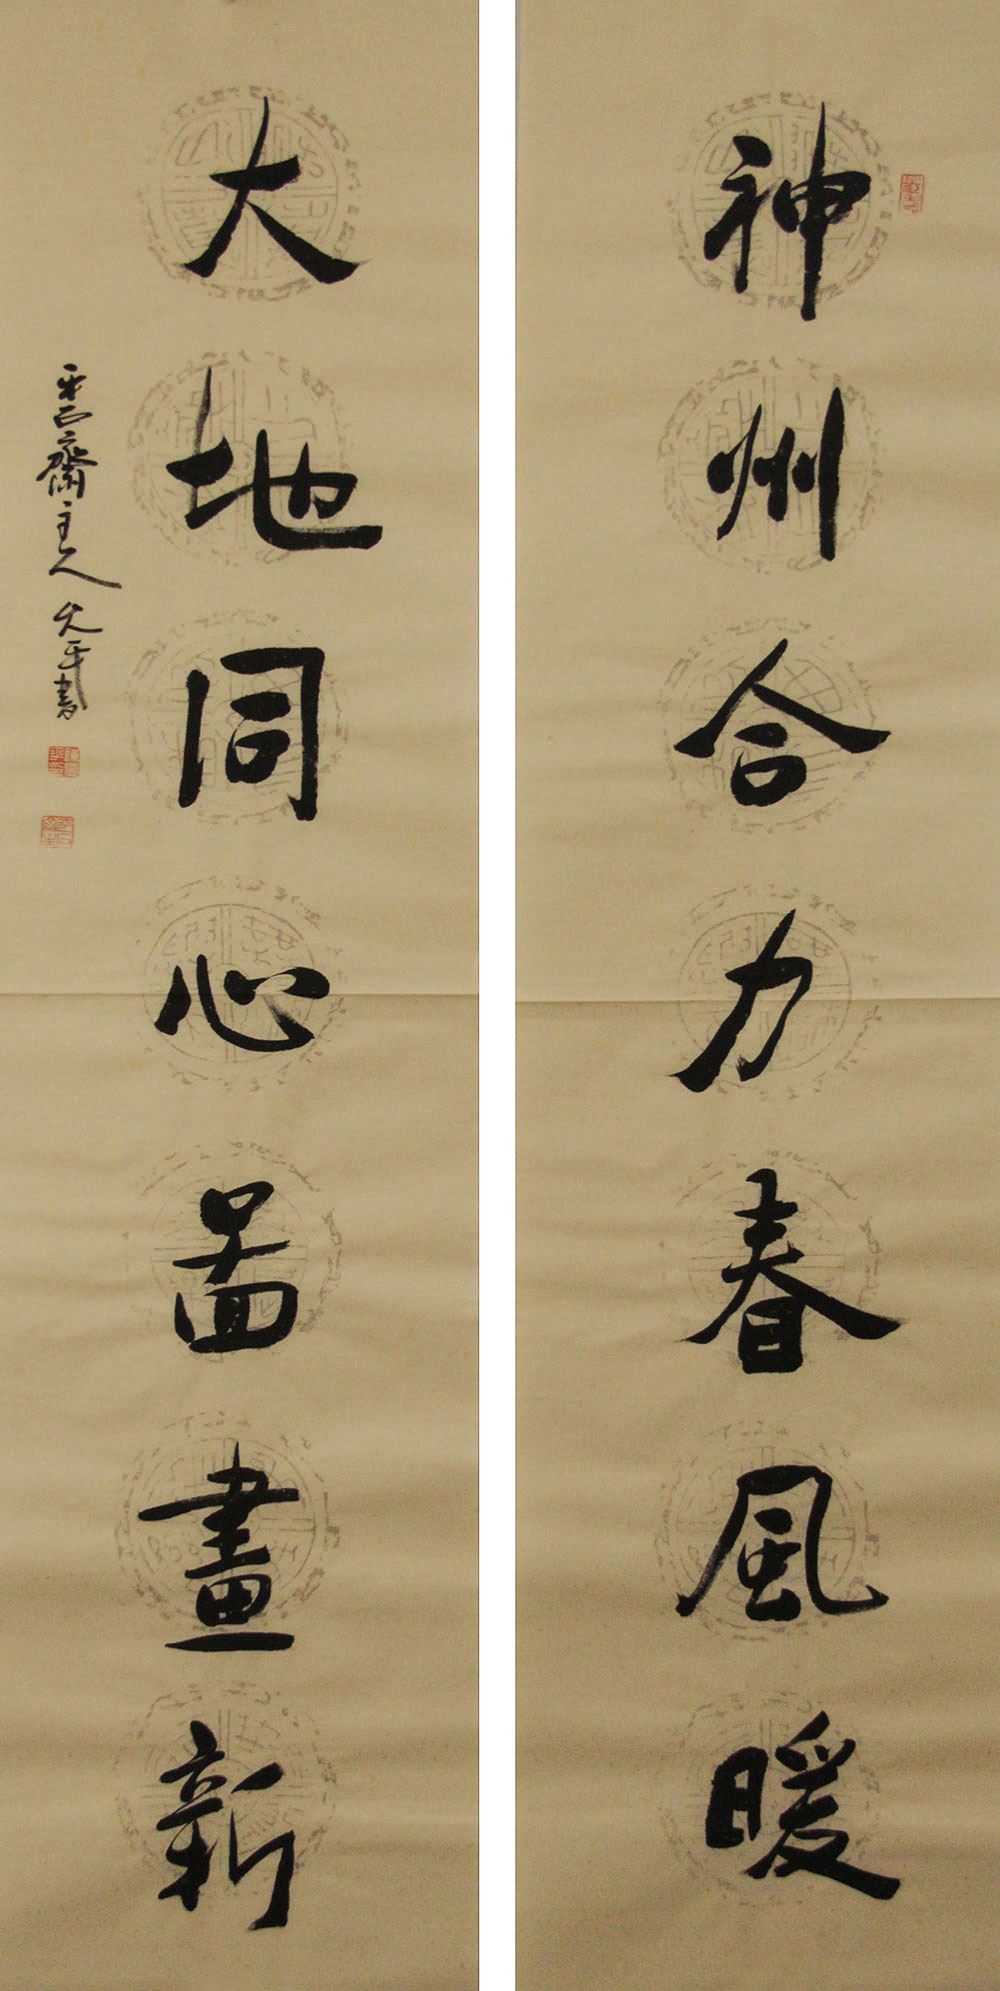 神州合力春風暖
大地同心啚畫新
齋主人 久平書